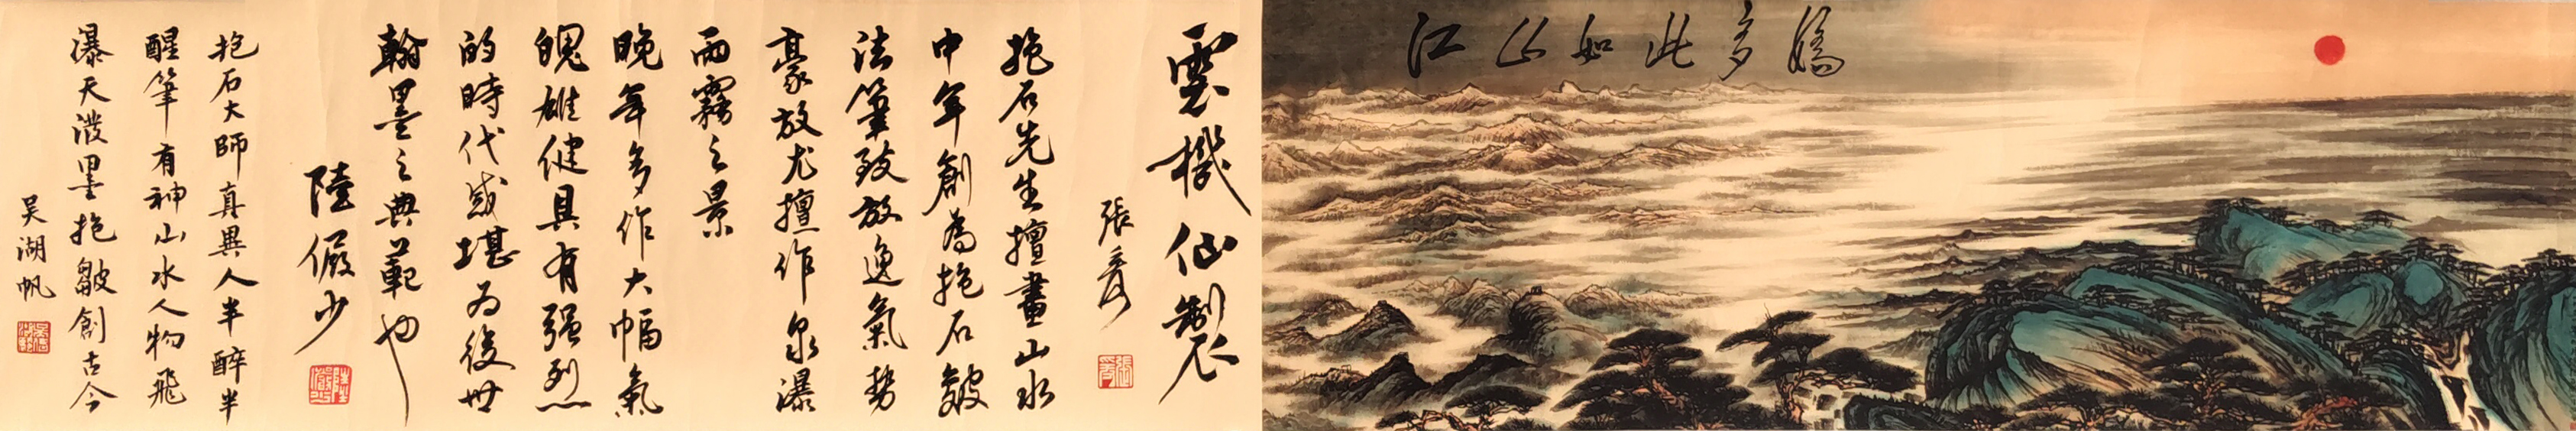 江山如此多嬌
雲機仙製
張爰
抱石先生擅畫山水
中年創為抱石皴
法筆致放逸氣勢
豪放尤擅作泉瀑
雨霧之景
晚年多作大幅氣
魄雄健具有强烈
的時代感堪为後世
翰墨之典範也
陸儼少
抱石大師真異人半醉半
醒筆有神山水人物飛
瀑天潑墨抱皴創古今
吴湖帆